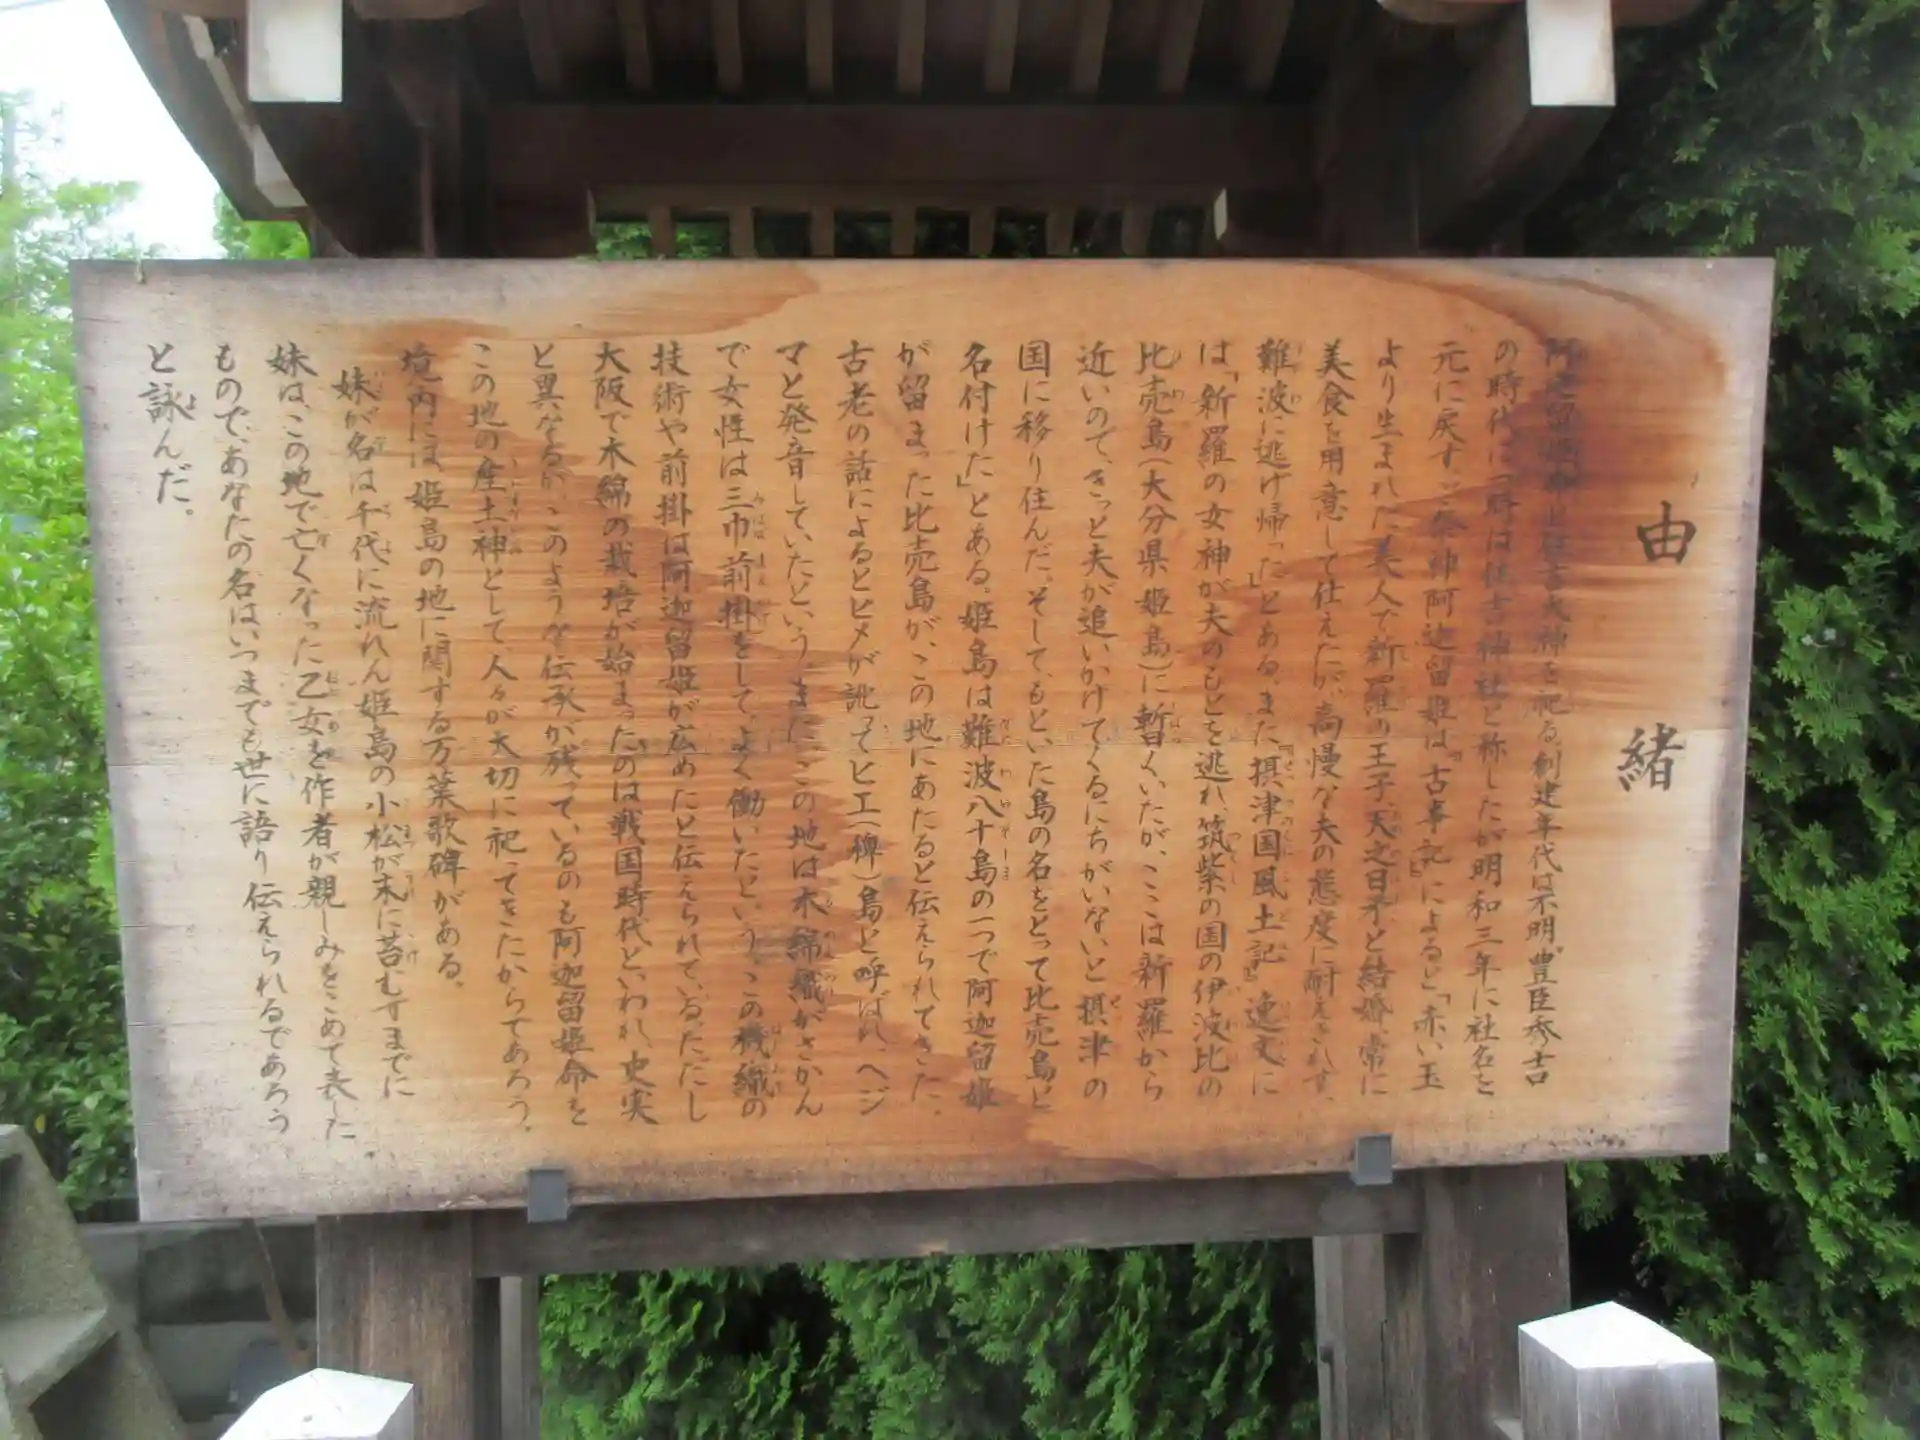 由緒
阿迦留姫命と住吉大神を祀る。創建年代は不明。豊臣秀吉
の時代に一時は住吉神社と称したが明和三年に社名を
元に戻す。ご祭神阿迦留姫は『古事記』によると「赤い玉
より生まれた美人で新羅の王子、天之日矛と結婚、常に
美食を用意して仕えたが、高慢な夫の態度に耐えきれず、
難波に逃げ帰った」とある。また『摂津国風土記』逸文に
は「新羅の女神が夫のもとを逃れ、筑紫の国の伊波比の
比売島(大分県姫島)に暫くいたが、ここは新羅から
近いので、きっと夫が追いかけてくるにちがいないと摂津の
国に移り住んだ。そして、もといた島の名をとって比売島と
名付けた」とある。姫島は難波八十島の一つで阿迦留姫
が留まった比売島が、この地にあたると伝えられてきた。
古老の話によるとヒメが訛ってヒエ(稗)島と呼ばれ、ヘジ
マと発音していたという。また、この地は木綿織がさかん
で女性は三巾前掛をして、よく働いたという。この機織の
技術や前掛は阿迦留姫が広めたと伝えられている。ただし
大阪で木綿の栽培が始まったのは戦国時代といわれ、史実
と異なるが、このような伝承が残っているのも阿迦留姫命を
この地の産土神として、人々が大切に祀ってきたからであろう。
境内には姫島の地に関する万葉歌碑がある。
妹が名は千代に流れん姫島の小松が末に苔むすまでに
妹は、この地で亡くなった乙女を作者が親しみをこめて表した
もので、あなたの名はいつまでも世に語り伝えられるであろう
と詠んだ。